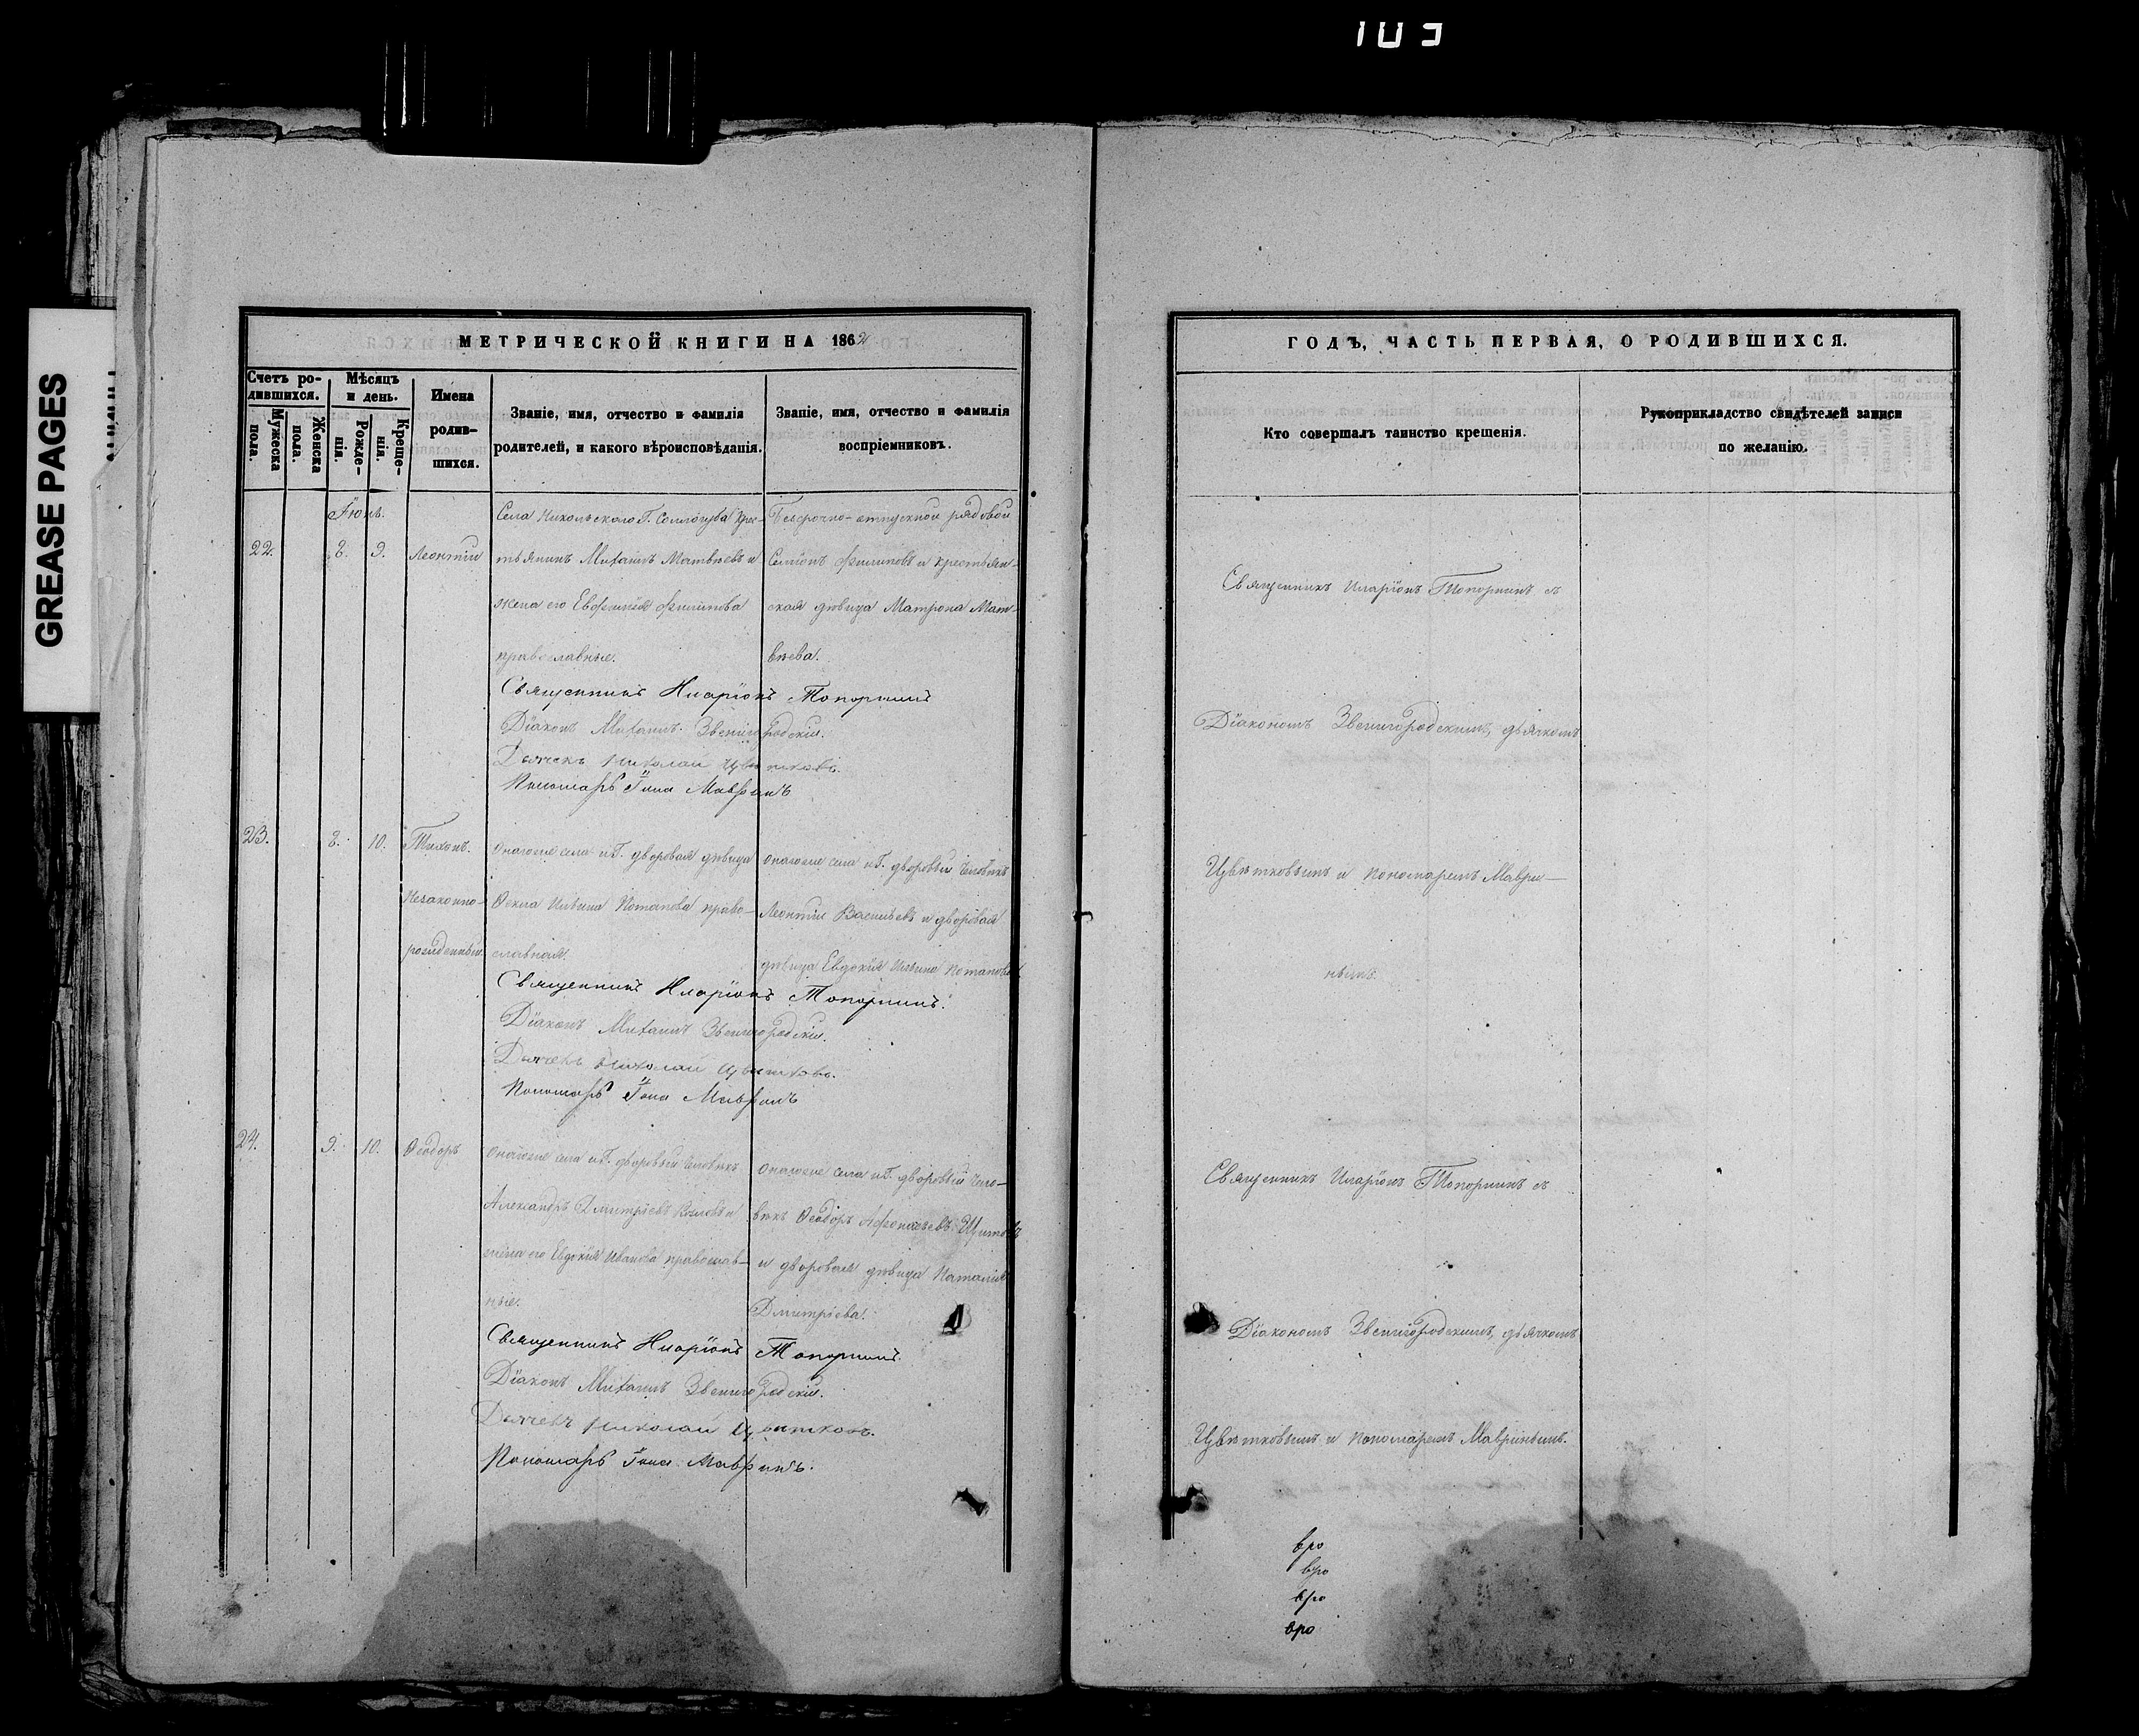 103
GREASE PAGES
МЕТРИЧЕСКОЙ КНИГИ НА 1862
Счетъ ро-
дившихся.
Мужеска
пола.
Женска
пола.
Мѣсяцъ
и день.
Рожде-
нія.
Креще-
нія.
Имена
родив-
шихся.
Званіе, имя, отчество и фамилія
родителей, и какого вѣроисповѣданія.
Званіе, имя, отчество и фамилія
воспріемниковъ.
Іюнь.
22. 8. 9. Леонтій
Села Никольскаго Г. Соллогуба крес-
тьянинъ Михаилъ Матвѣевъ и
жена его Евфимія Филипова
православные.
Безсрочно-отпускной рядовой
Семіонъ Филиповъ и крестьян-
ская дѣвица Матрона Мат-
вѣева.
Священникъ Иларіонъ Топорнинъ
Діаконъ Михаилъ Звенигородскій.
Дьячекъ Николай Цвѣтковъ.
Пономарь Іона Мавринъ
23. 8. 10. Тихонъ.
Незаконно-
рожденный.
Онагоже села и Г. дворовая дѣвица
Ѳекла Ильина Потапова право-
славная.
Онагоже села и Г. дворовый человѣкъ
Леонтій Васильевъ и дворовая
дѣвица Евдокія Ильина Потапова.
Священникъ Иларіонъ Топорнинъ.
Діаконъ Михаилъ Звенигородскій.
Дьячекъ Николай Цвѣтковъ.
Пономарь Іона Мавринъ
24. 9. 10. Ѳеодоръ
Онагоже села и Г. дворовый человѣкъ
Александръ Дмитріевъ и
жена его Евдокія Иванова православ-
ные.
Онагоже села и Г. дворовый чело-
вѣкъ Ѳеодоръ Афонасьевъ
и дворовая дѣвица Наталія
Дмитріева.
Священникъ Иларіонъ Топорнинъ.
Діаконъ Михаилъ Звенигородскій.
Дьячекъ Николай Цвѣтковъ.
Пономарь Іона Мавринъ.
ГОДЪ, ЧАСТЬ ПЕРВАЯ, О РОДИВШИХСЯ.
Кто совершалъ таинство крещенія.
Рукоприкладство свидѣтелей записи
по желанію.
Священникъ Иларіонъ Топорнинъ съ
Діакономъ Звенигородскимъ, дьячкомъ
Цвѣтковымъ и пономаремъ Маври-
нымъ.
Священникъ Иларіонъ Топорнинъ съ
Діакономъ Звенигородскимъ, дьячкомъ
Цвѣтковымъ и пономаремъ Мавринымъ.
вро
вро
вро
вро